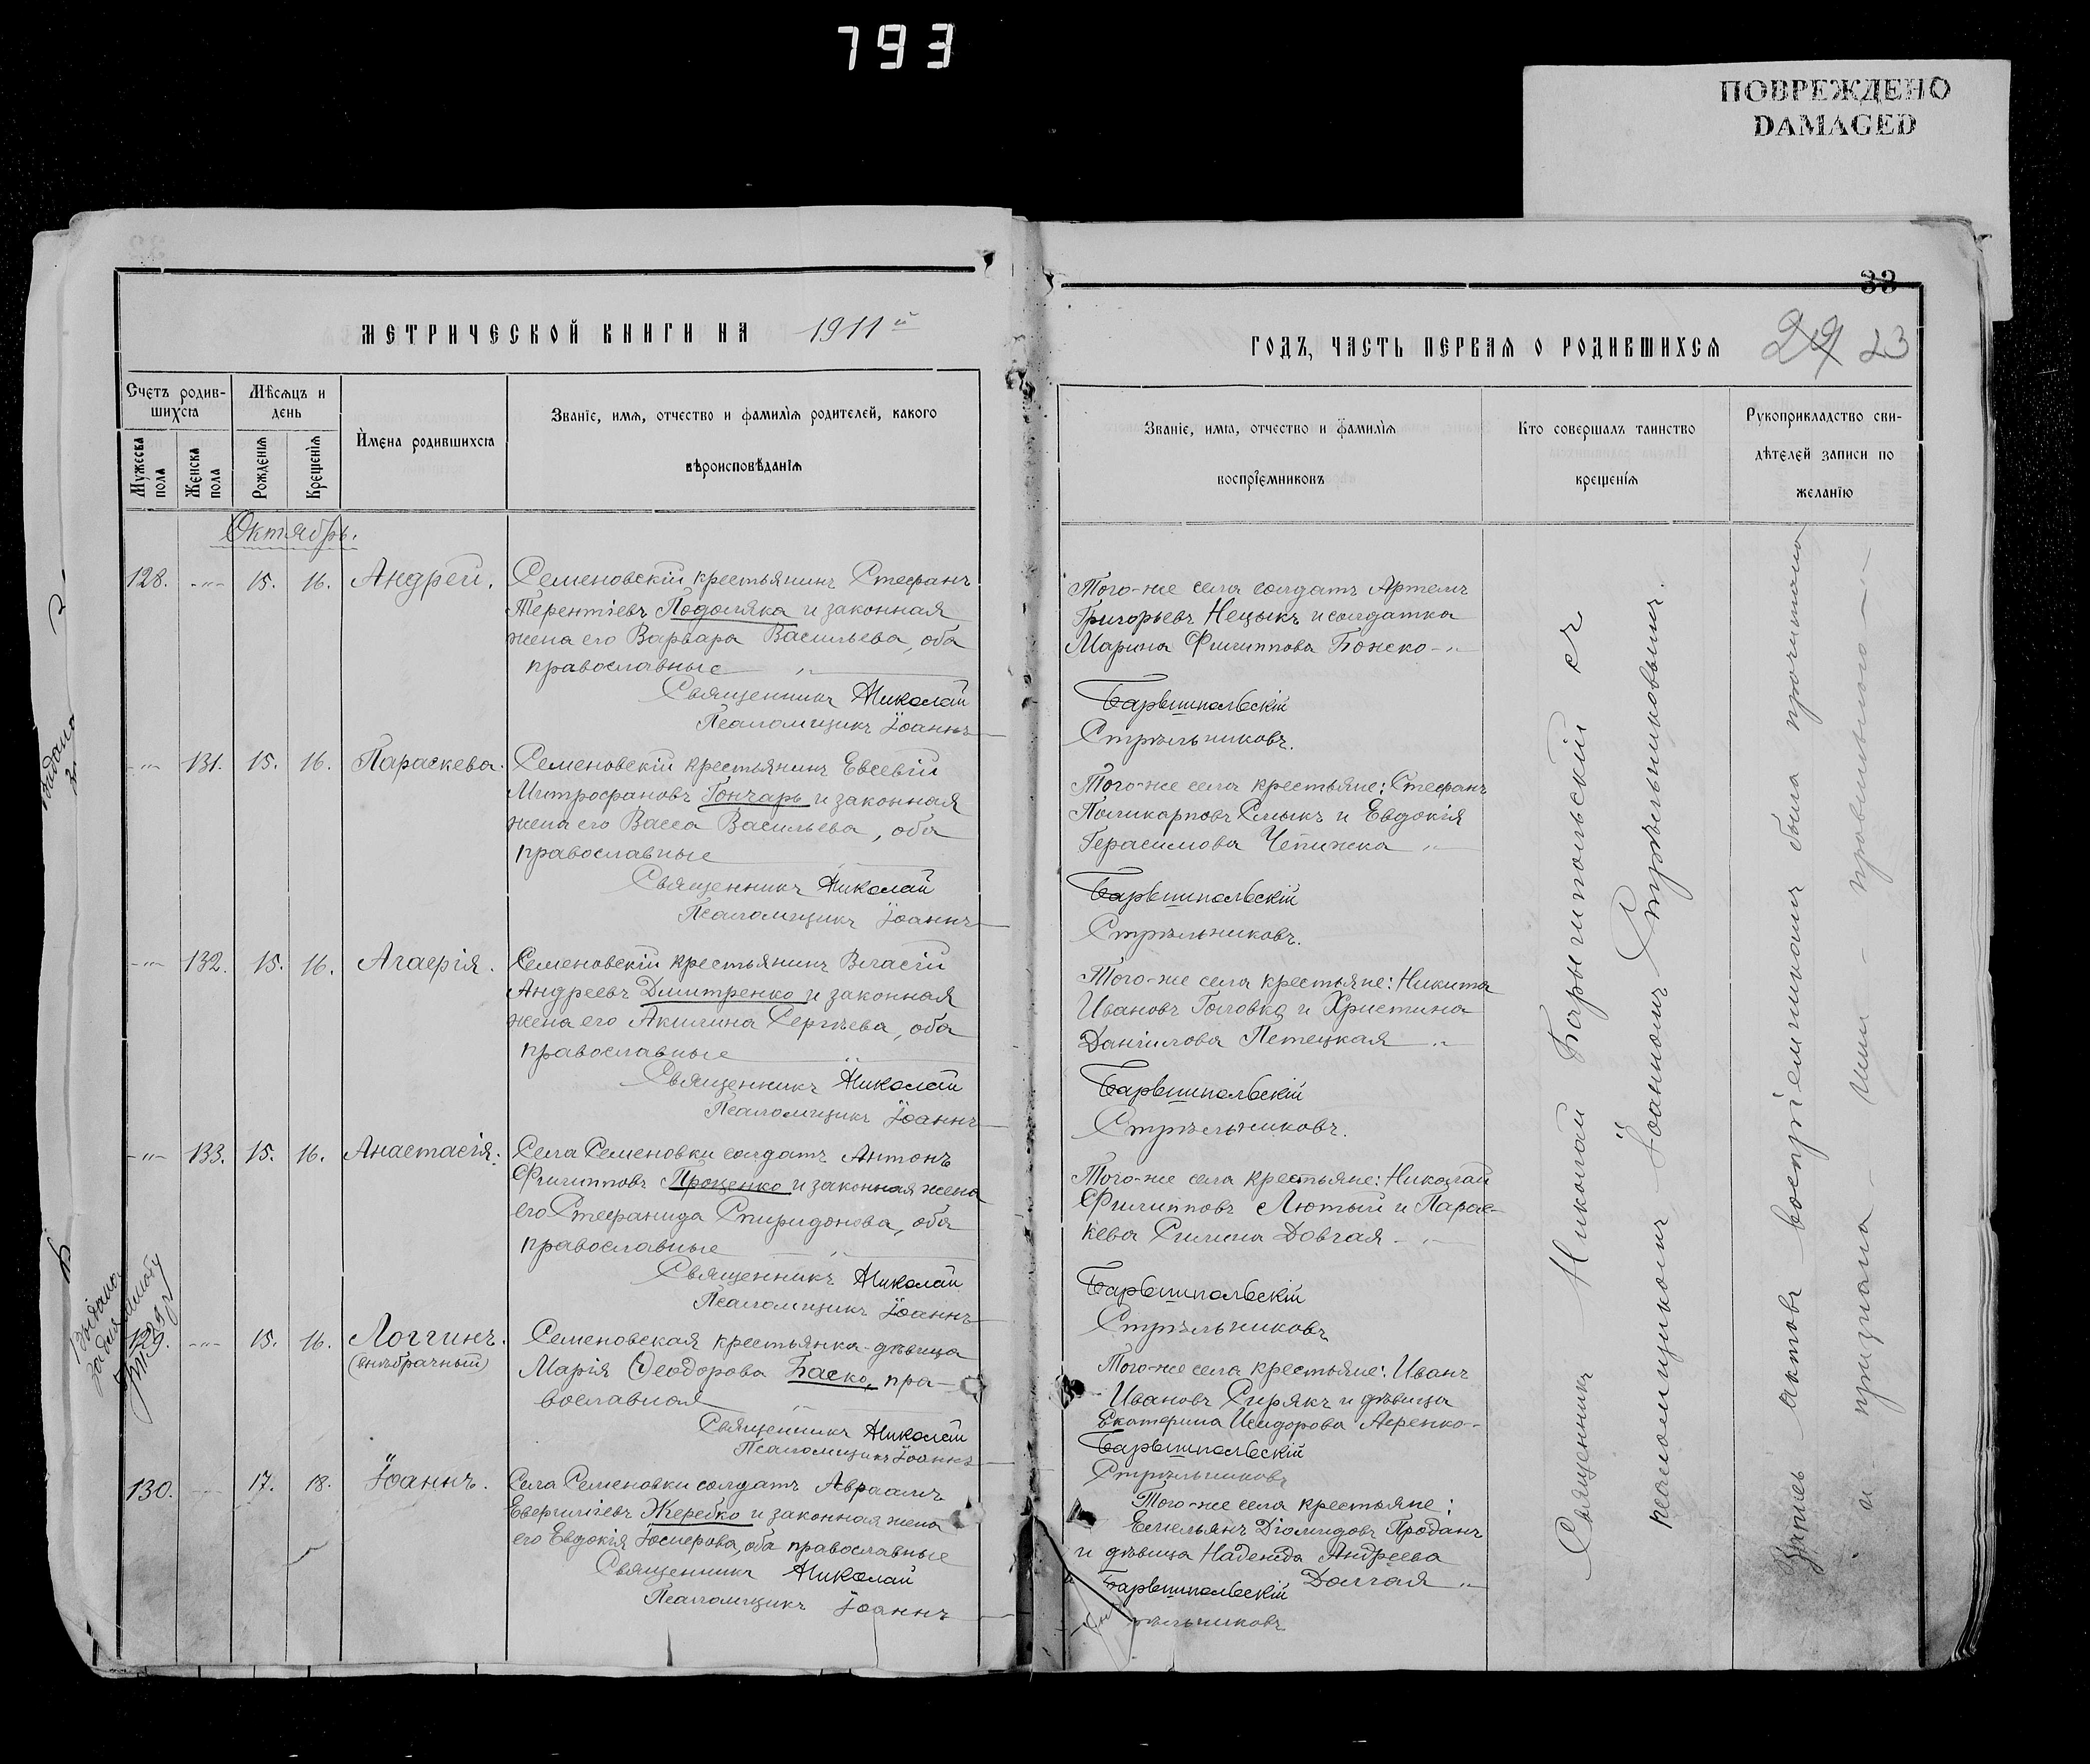 793
ПОВРЕЖДЕНО
DAMAGED
МЕТРИЧЕСКОЙ КНИГИ НА 1911й
Счетъ родив-
шихся
Мѣсяцъ и
день
Мужеска
пола
Женска
пола
Рожденія
Крещенія
Имена родившихся
Званіе, имя, отчество и фамилія родителей, какого
вѣроисповѣданія
Октябрь.
128. -"- 15. 16. Андрей. Семеновскій крестьянинъ Стефанъ
Терентіевъ Подоляка и законная
жена его Варвара Васильева, оба
православные
Священникъ Николай
Псаломщикъ Іоаннъ
-"- 131. 15. 16. Параскева. Семеновскій крестьянинъ Евсевій
Митрофановъ Гончаръ и законная
жена его Васса Васильева, оба
православные
Священникъ Николай
Псаломщикъ Іоаннъ
-"- 132. 15. 16. Агафія. Семеновскій крестьянинъ Власій
Андреевъ Дмитренко и законная
жена его Акилина Сергѣева, оба
православные
Священникъ Николай
Псаломщикъ Іоаннъ
-"- 133. 15. 16. Анастасія. Села Семеновки солдатъ Антонъ
Филипповъ Проценко и законная жена
его Стефанида Спиридонова, оба
православные
Священникъ Николай
Псаломщикъ Іоаннъ
129. -"- 15. 16. Логгинъ. Семеновская крестьянка-дѣвица
(внѣбрачный) Марія Ѳеодорова Баско, пра-
вославная
Священникъ Николай
Псаломщикъ Іоаннъ
130. 17. 18. Іоаннъ. Села Семеновки солдатъ Авраамъ
Жеребко и законная жена
его Евдокія оба православные
Священникъ Николай
Псаломщикъ Іоаннъ
33
ГОДЪ, ЧАСТЬ ПЕРВАЯ О РОДИВШИХСЯ
23
Званіе, имя, отчество и фамилія
воспріемниковъ
Кто совершалъ таинство
крещенія
Рукоприкладство сви-
дѣтелей записи по
желанію
Того-же села солдатъ Артемъ
Григорьевъ Нецыкъ и солдатка
Марина Филиппова Божко -"-
Барышпольскій
Стрѣльниковъ.
Того-же села крестьяне: Стефанъ
Поликарповъ Смыкъ и Евдокія
Герасимова Чепижка
Барышпольскій
Стрѣльниковъ.
Того-же села крестьяне: Никита
Ивановъ Головко и Христина
Даніилова Петецкая
Барышпольскій
Стрѣльниковъ.
Того-же села крестьяне: Николай
Филипповъ Лютый и Парас-
кева Симина Довгая
Барышпольскій
Стрѣльниковъ
Того-же села крестьяне: Иванъ
Ивановъ Сирякъ и дѣвица
Екатерина Исидорова
Барышпольскій
Стрѣльниковъ
Того-же села крестьяне:
Емельянъ Діомидовъ Проданъ
и дѣвица Надежда Андреева
Долгая
Барышпольскій
Священникъ Николай Барышпольскій съ
псаломщикомъ Іоанномъ Стрѣльниковымъ.
Запись актовъ воспріемниками была прочитана
и признана ими правильною